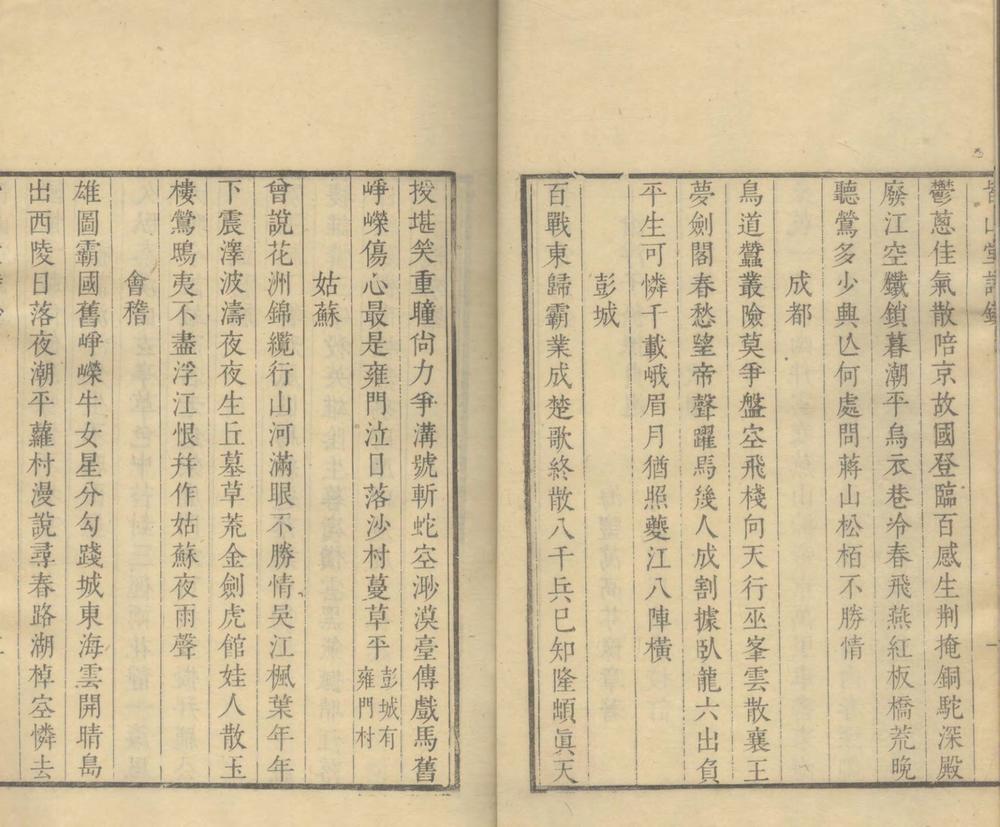 山堂詩
鬱蔥佳氣散陪京故國登臨百感生荆掩銅駝深殿
廢江空鑯鎖暮潮平烏衣巷冷春飛燕紅板橋荒晚
聽鶯多少興亾何處問蔣山松栢不勝情
成都
鳥道蠶叢險莫爭盤空飛棧向天行巫峯雲散襄王
夢劍閣春愁望帝聲躍馬幾人成割據臥龍六出負
平生可憐千載峨眉月猶照夔江八陣橫
彭城
百戰東歸霸業成楚歌終散八千兵已知隆䪼眞天
授堪笑重瞳尙力爭溝號斬蛇空渺漠臺傳戲馬舊
崢嶸傷心最是雍門泣日落沙村蔓草平彭城有
雍門村
姑蘇
曾說花洲錦纜行山河滿眼不勝情吳江楓葉年年
下震澤波濤夜夜生丘墓草荒金劍虎館娃人散玉
樓鶯鴟夷不盡浮江恨幷作姑蘇夜雨聲
會稽
雄圖霸國舊崢嶸牛女星分勾踐城東海雲開晴島
出西陵日落夜潮平蘿村漫說尋春路湖棹空憐去